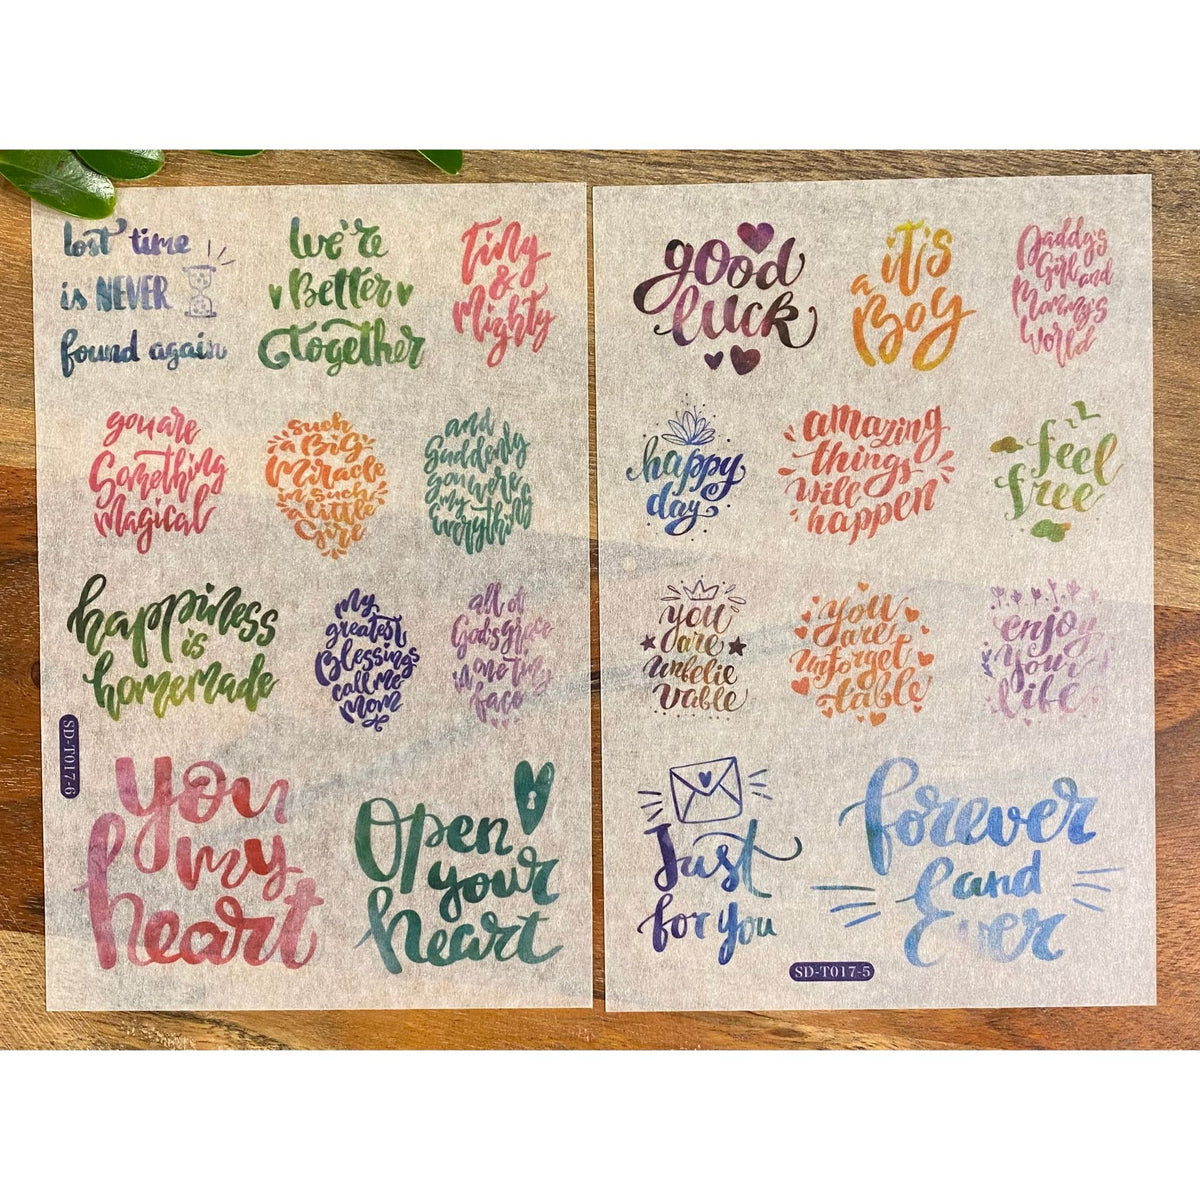 lost time
is NEVER
found again
We're
Better
together
Tiny
&
Mighty
you are
Something
Magical
such
a BiG
Miracle
in such
a little
Gire
and
Suddenly
you were
my
Everything
happiness
is
homemade
my
greatest
Blessings
call me
mom
all of
God's grace
in one tiny
face
SD-T017-6
you
my
heart
Open
your
heart
good
luck
it's
a
Boy
Daddy's
Girl and
Mommy's
World
happy
day
amazing
things
will
happen
feel
free
you
are
unbelie
vable
you
are
unforget
table
enjoy
your
life
Just
for you
forever
and
Ever
SD-T017-5